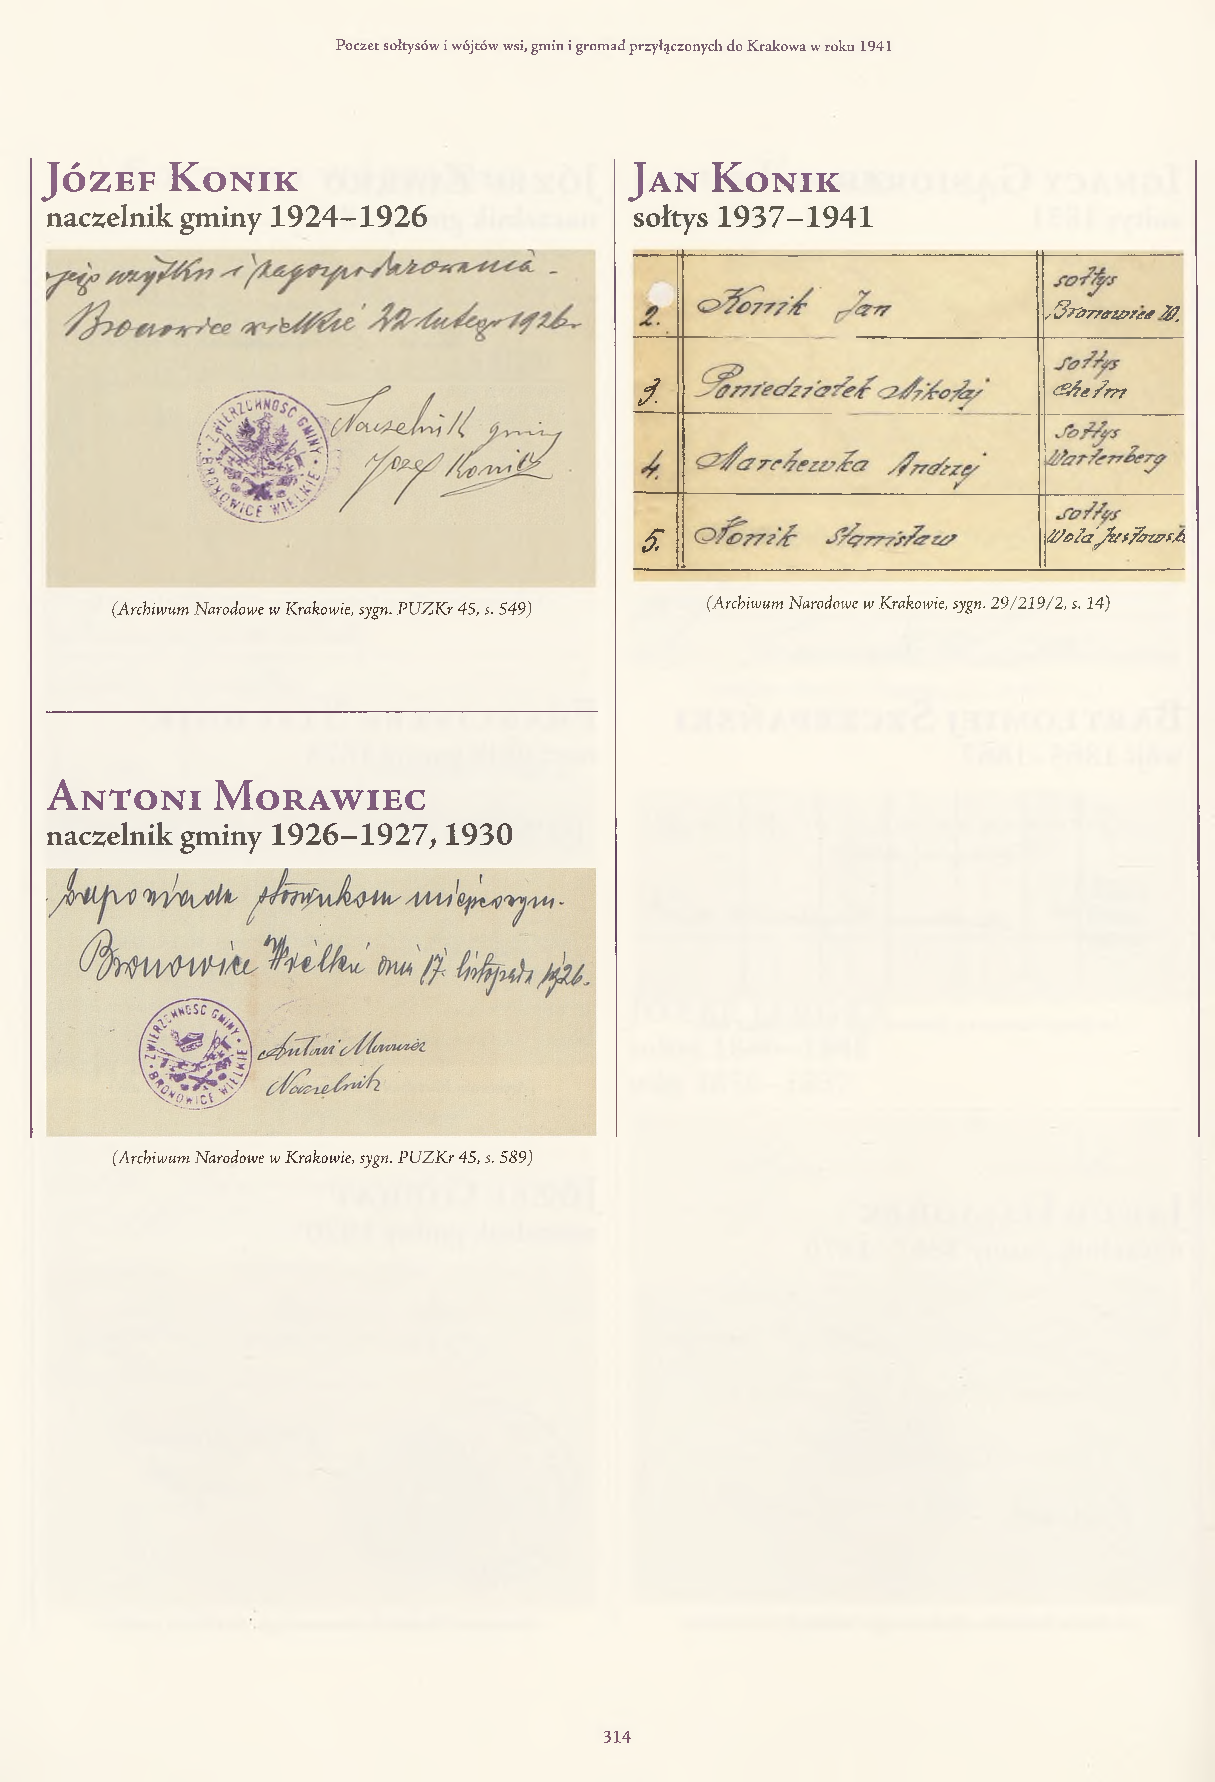 Poczet sołtysów i wójtów wsi, gmin i gromad przyłączonych do Krakowa w roku 1941
Józef Konik
naczelnik gminy 1924–1926
jego użytku i zagospodarowania -
Bronowice wielkie 22 lutego 1926r
ZWIERZCHNOŚĆ GMINY
BRONOWICE WIELKIE
Naczelnik gminy
Józef Konik
(Archiwum Narodowe w Krakowie, sygn. PUZKr 45, s. 549)
Antoni Morawiec
naczelnik gminy 1926–1927, 1930
stosunkom miejscowym.
Bronowice Wielkie dnia 17. listopada 1926.
ZWIERZCHNOŚĆ GMINY
BRONOWICE WIELKIE
Antoni Morawiec
Naczelnik
(Archiwum Narodowe w Krakowie, sygn. PUZKr 45, s. 589)
Jan Konik
sołtys 1937–1941
2. Konik Jan sołtys Bronowice W.
3. Poniedziałek Mikołaj sołtys Chełm
4. Marchewka Andrzej sołtys Wartenberg
5. Konik Stanisław sołtys Wola Justowsk
(Archiwum Narodowe w Krakowie, sygn. 29/219/2, s. 14)
314